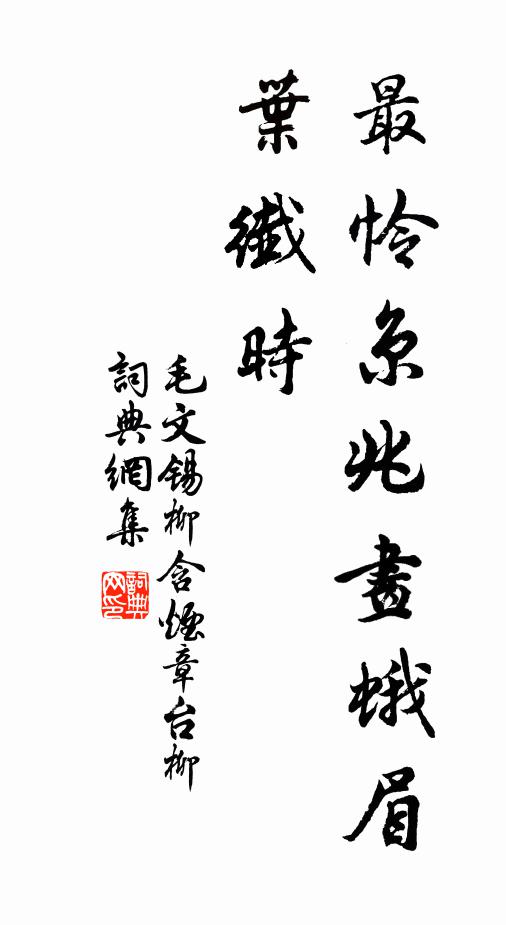 最怜京兆畫蛾眉
葉纖時
毛文錫柳含煙章台柳
詞典網集
詞典网印